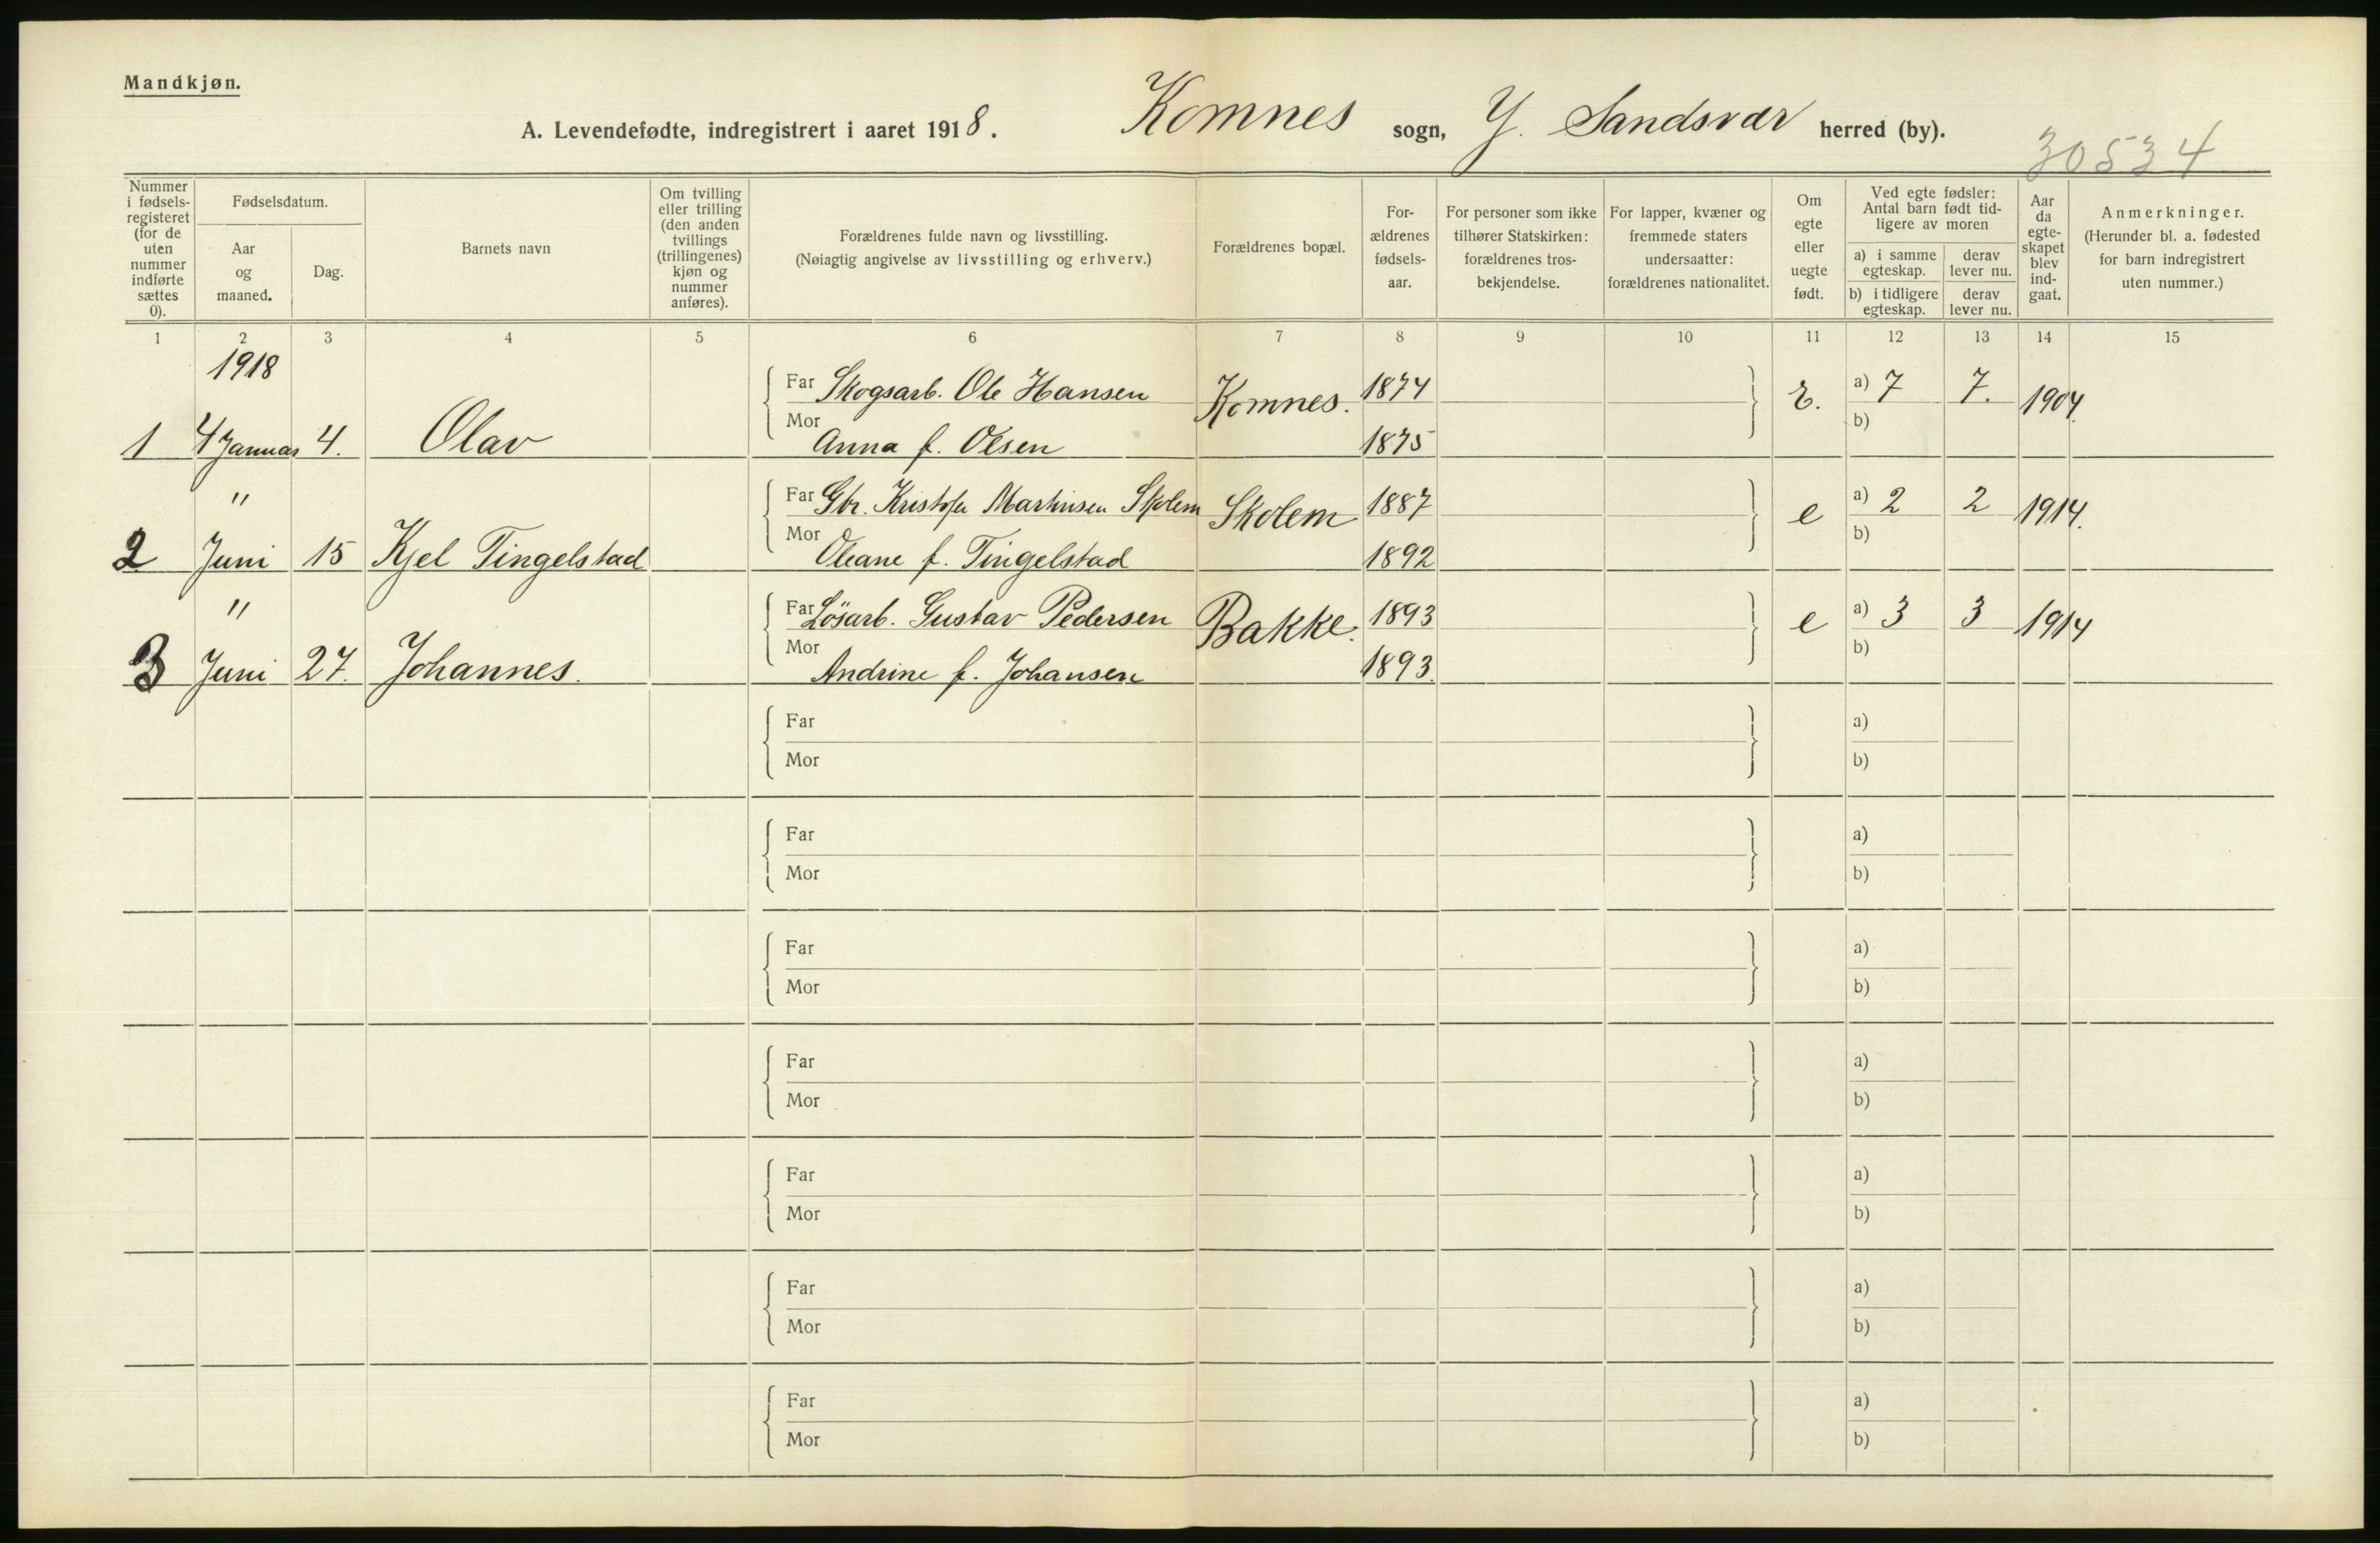 Mandkjøn.
A. Levendefødte, indregistrert i aaret 1918. Komnes sogn, Y. Sandsvær herred (by).
30534
Nummer i fødsels-registeret (for de uten nummer indførte sættes 0).
Fødselsdatum.
Aar og maaned.
Dag.
Barnets navn
Om tvilling eller trilling (den anden tvillings (trillingenes) kjøn og nummer anføres).
Forældrenes fulde navn og livsstilling.
(Nøiagtig angivelse av livsstilling og erhverv.)
Forældrenes bopæl.
For-ældrenes fødsels-aar.
For personer som ikke tilhører Statskirken: forældrenes tros-bekjendelse.
For lapper, kvæner og fremmede staters undersaatter: forældrenes nationalitet.
Om egte eller uegte født.
Ved egte fødsler: Antal barn født tid-ligere av moren
a) i samme egteskap.
derav lever nu.
b) i tidligere egteskap.
derav lever nu.
Aar da egte-skapet blev ind-gaat.
Anmerkninger.
(Herunder bl. a. fødested for barn indregistrert uten nummer.)
1 2 3 4 5 6 7 8 9 10 11 12 13 14 15
1918
Far Skogsarb. Ole Hansen Komnes. 1874 E. a) 7 7. 1904.
Mor b)
1 4 Januar 4. Olav Anna f. Olsen 1875
" Far Gbr. Kristofer Martinsen Skolem Skolem 1887 e a) 2 2 1914.
Mor b)
2 Juni 15 Kjel Tingelstad Oleane f. Tingelstad 1892
" Far Lösarb. Gustav Pedersen Bakke. 1893 e a) 3 3 1914
Mor b)
3 Juni 27. Johannes. Andrine f. Johansen 1893.
Far a)
Mor b)
Far a)
Mor b)
Far a)
Mor b)
Far a)
Mor b)
Far a)
Mor b)
Far a)
Mor b)
Far a)
Mor b)